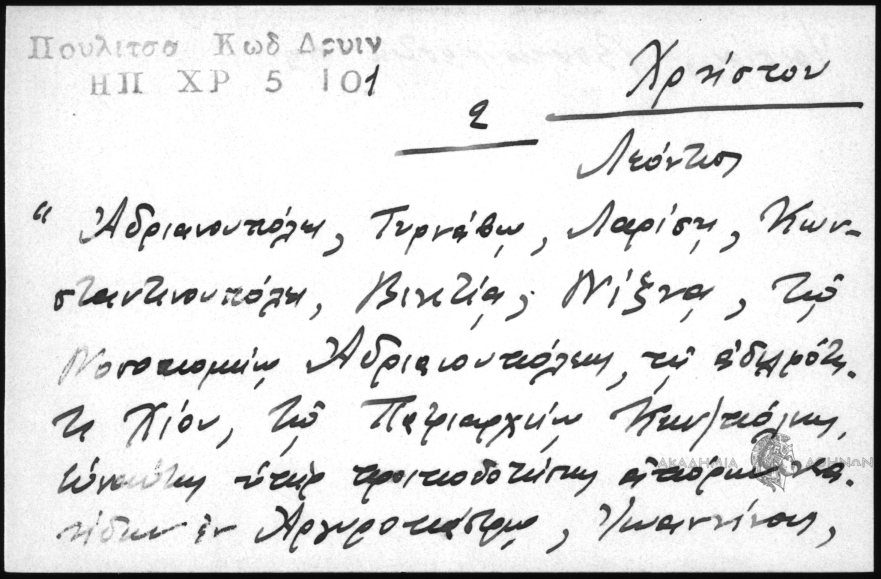 Πουλιτσα Κωδ Δρυιν
ΗΠ ΧΡ 5 101
Χρήστου
2
Λεόντιος
“ Ἀδριανουπόλει, Τυρνάβῳ, Λαρίσῃ, Κων-
σταντινουπόλει, Βενετίᾳ, Νίξνᾳ, τῷ
Νοσοκομείῳ Ἀδριανουπόλεως, τῇ ἀδελφότη-
τι Χίου, τῷ Πατριαρχείῳ Κων/πόλεως,
ὑπὲρ προικοδοτήσεως ἀπόρων
ἐν Ἀργυροκάστρῳ, Ἰωαννίνοις,
ΑΚΑΔΗΜΙΑ ΑΘΗΝΩΝ